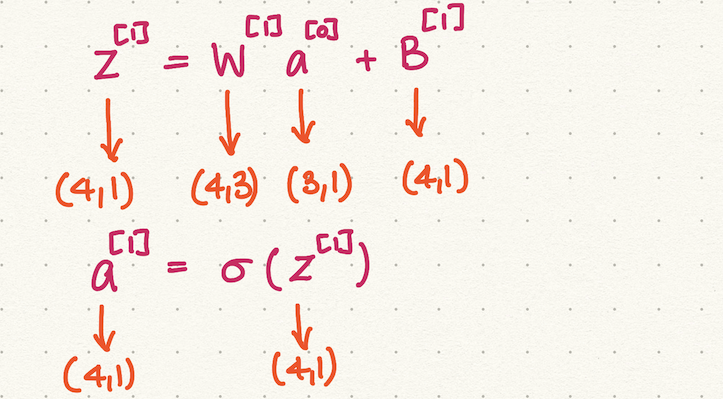 z^[1] = W^[1] a^[0] + B^[1]
(4,1) (4,3) (3,1) (4,1)
a^[1] = σ(z^[1])
(4,1) (4,1)